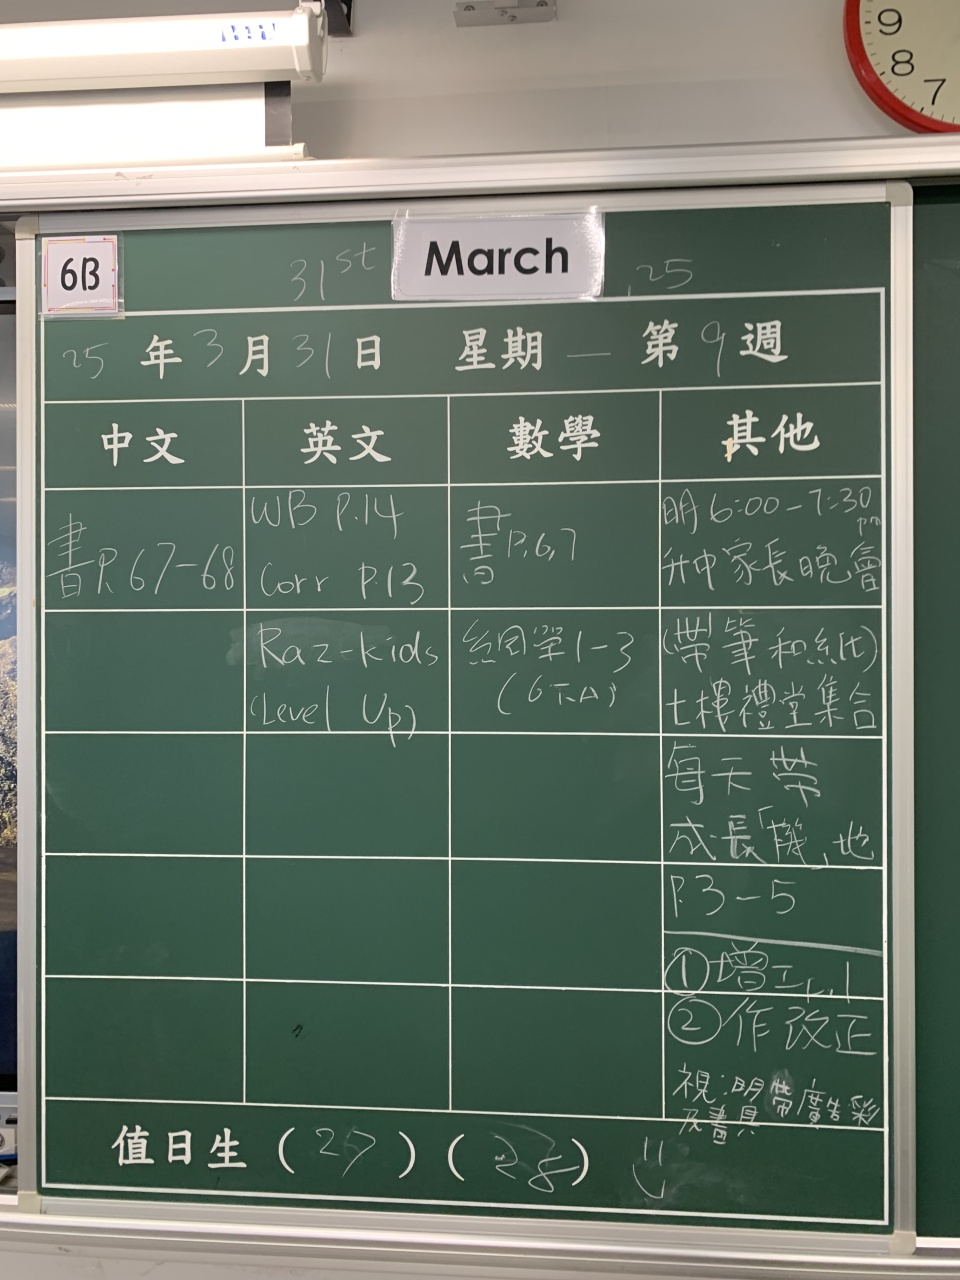 9
8
7
6B
31st March , 25
25 年 3 月 31 日 星期 一 第 9 週
中文 英文 數學 其他
書 P. 67-68
WB P.14
Corr P.13
書 P.6,7
明 6:00-7:30 pm
升中家長晚會
Raz-kids
(Level Up)
網學 1-3
(6下A)
(帶筆和紙)
七樓禮堂集合
每天帶
成長「機」地
P.3-5
① 增工
② 作改正
視:明帶廣告彩
及畫具
值日生 (27) (28)